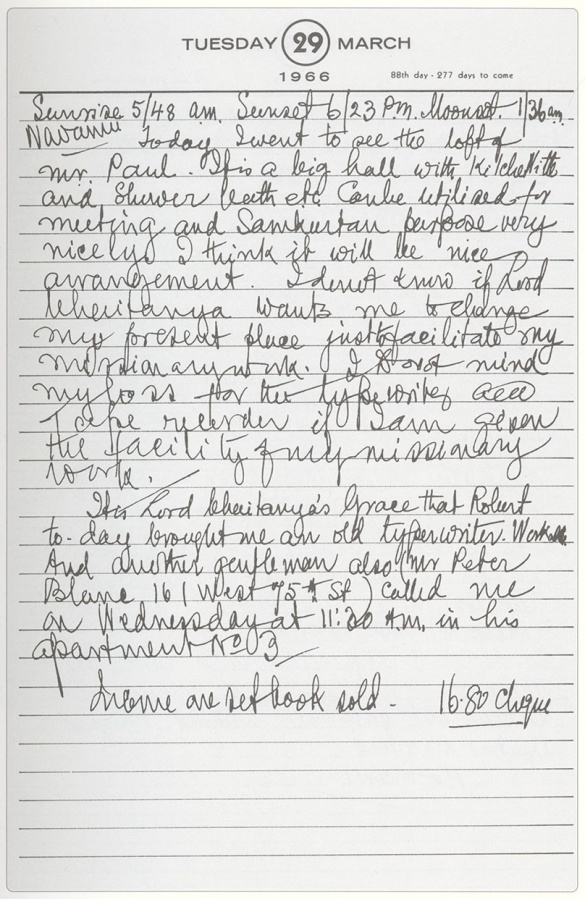 TUESDAY 29 MARCH
1966
88th day - 277 days to come
Sunrise 5/48 a.m. Sunset 6/23 P.m. Moonset. 1/36 a.m
Navami Today I went to see the loft of
mr. Paul. It is a big hall with Kitchenette
and Shower bath etc. Can be utilised for
meeting and Samkirtan purpose very
nicely. I think it will be nice
arrangement. I do not know if Lord
Chaitanya wants me to change
my present place just to facilitate my
missionary work. I do not mind
my loss for the typewriter and
Tape recorder if I am given
the facility of my missionary
work.
It is Lord Chaitanya's Grace that Robert
to-day brought me an old typewriter.
And another gentleman also (mr Peter
Blane 161 West 75th St) called me
on Wednesday at 11:30 A.M. in his
apartment No 3
Income one set book sold - 16.80 Cheque